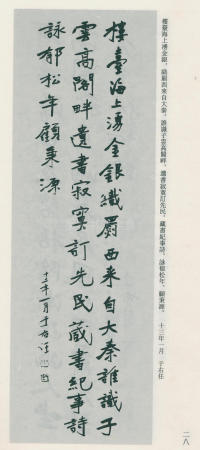 樓臺海上湧金銀，織罽西來自大秦。誰識子雲高閣畔，遺書寂寞訂先民。藏書紀事詩，詠郁松年、顧秉源。 十三年一月 于右任
樓臺海上湧金銀織罽西来自大秦誰識子
雲高閣畔遺書寂寞訂先民藏書紀事詩
詠郁松年顧秉源
十三年一月于右任
二八